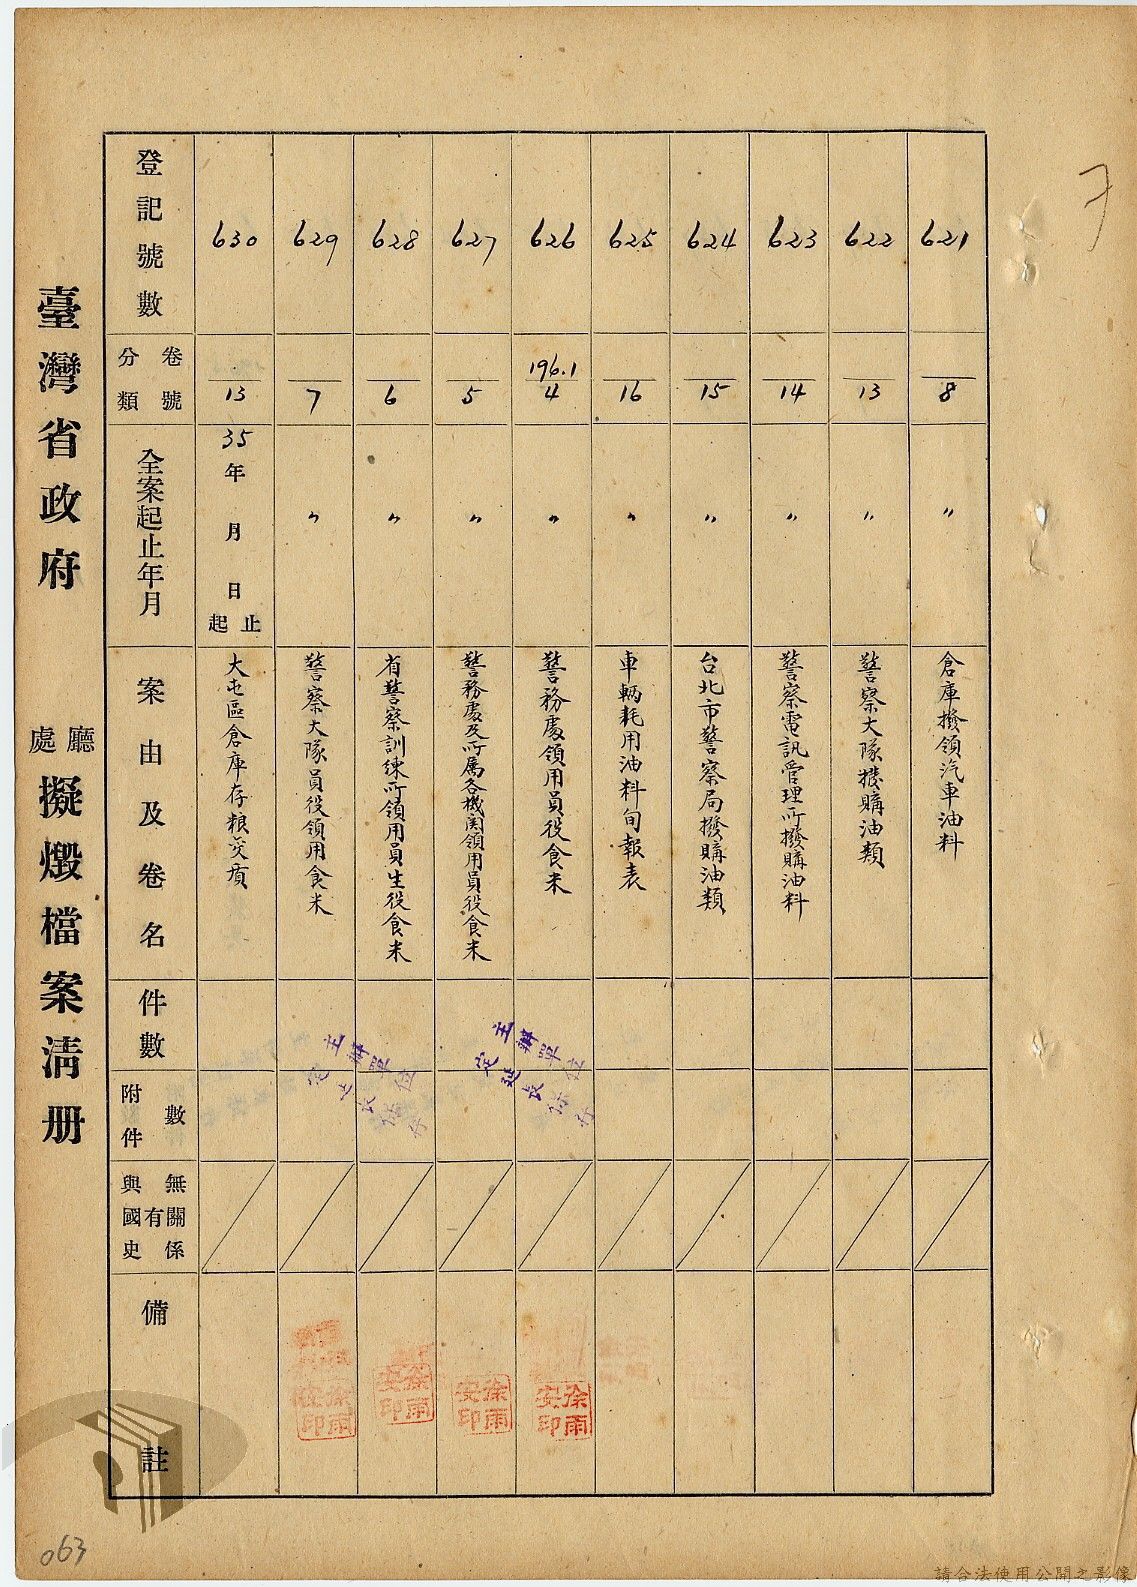 臺灣省政府 廳處 擬燬檔案清册
登記號數
卷號
分類
全案起止年月
案由及卷名
件數
附件數
與國史有無關係
備註
621
8
〃
倉庫撥領汽車油料
622
13
〃
警察大隊撥購油類
623
14
〃
警察電訊管理所撥購油料
624
15
〃
台北市警察局撥購油類
625
16
〃
車輛耗用油料旬報表
626
196.1
4
〃
警務處領用員役食米
627
5
〃
警務處及所属各機関領用員役食米
628
6
〃
省警察訓練所領用員生役食米
629
7
〃
警察大隊員役領用食米
630
13
35年 月 日 起止
大屯區倉庫存粮
主辦單位
主辦單位
徐雨安印
徐雨安印
徐雨安印
徐雨安印
063
請合法使用公開之影像